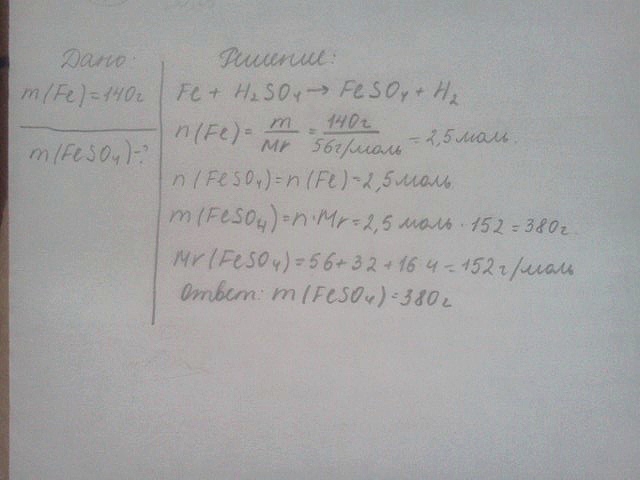 Дано:
m(Fe)=140г
m(FeSO4)-?
Решение:
Fe + H2SO4 → FeSO4 + H2
n(Fe) = m/Mr = 140г/56г/моль = 2,5 моль.
n(FeSO4)=n(Fe)=2,5моль
m(FeSO4)=n·Mr=2,5 моль · 152 = 380г.
Mr(FeSO4)=56+32+16·4=152г/моль
Ответ: m(FeSO4)=380г